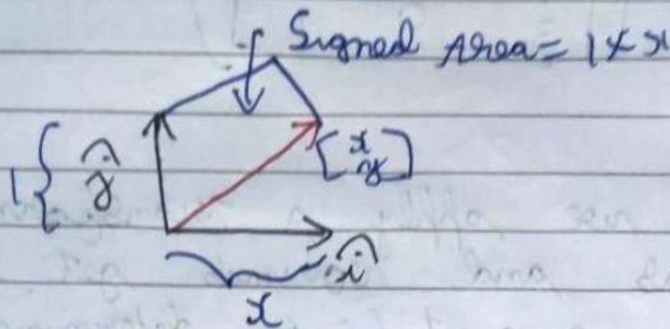 Signed Area = 1 × x
1 { ĵ
[x
y]
î
x